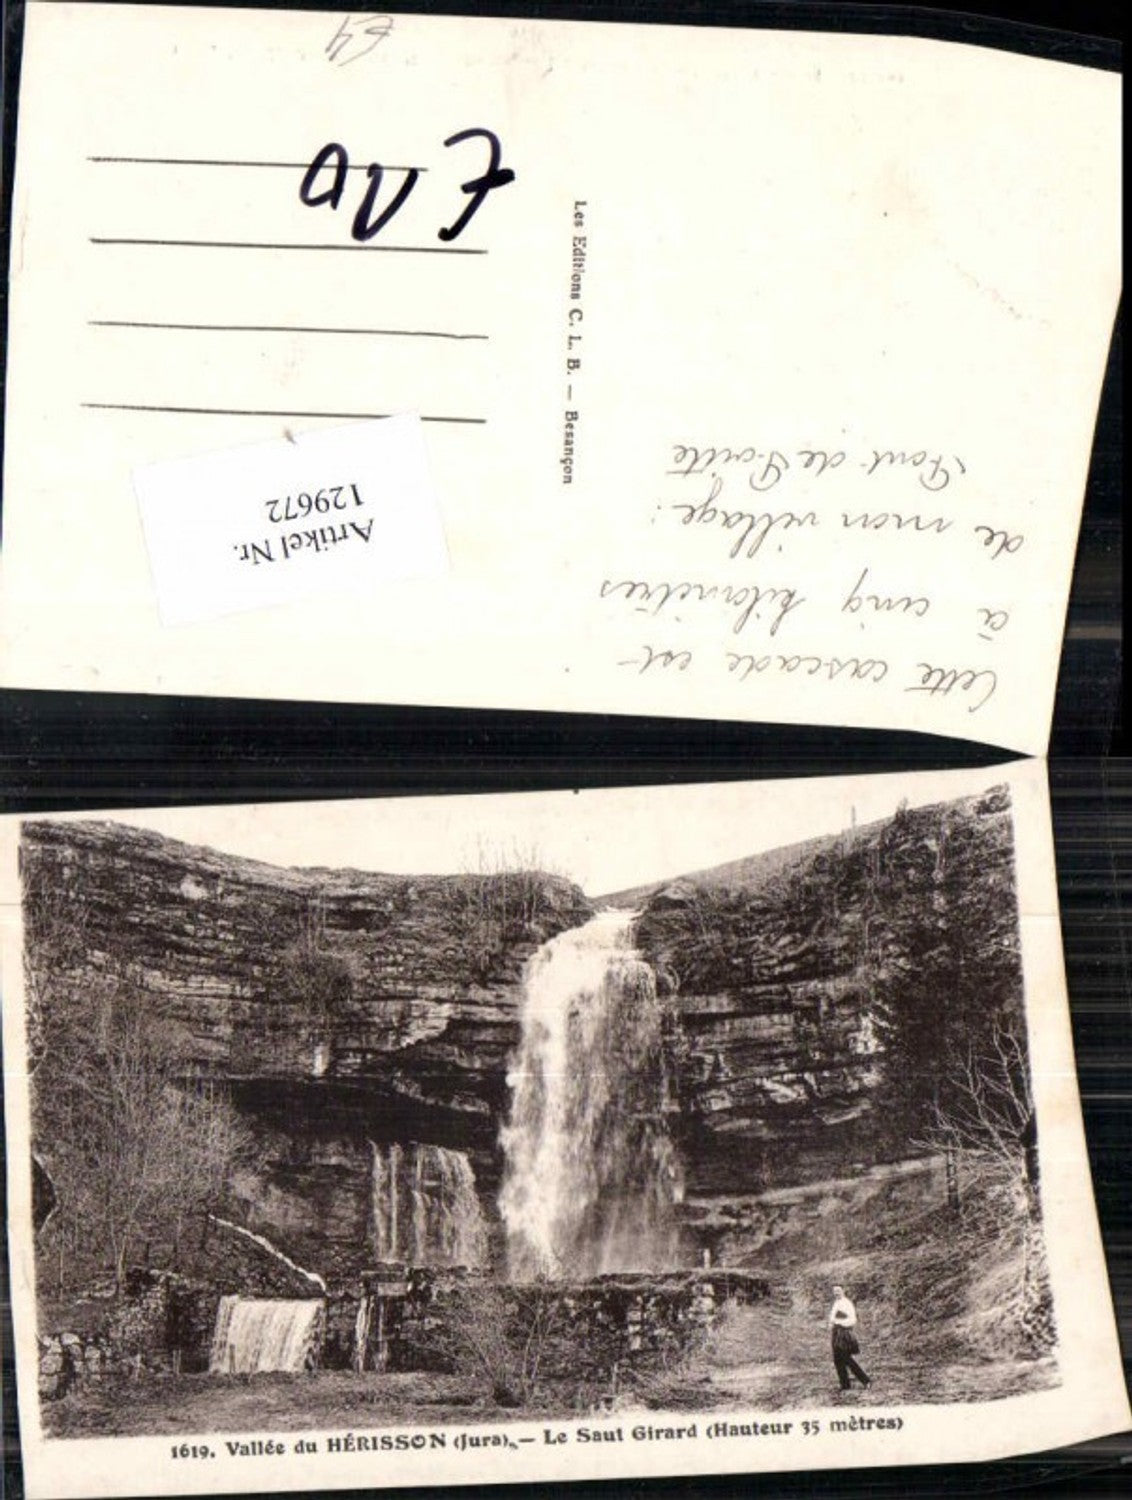 Cette cascade est
à cinq kilomètres
de mon village:
Pont de Poitte
Les Editions C. L. B. — Besançon
Artikel Nr.
129672
1619. Vallée du HÉRISSON (Jura). — Le Saut Girard (Hauteur 35 mètres)